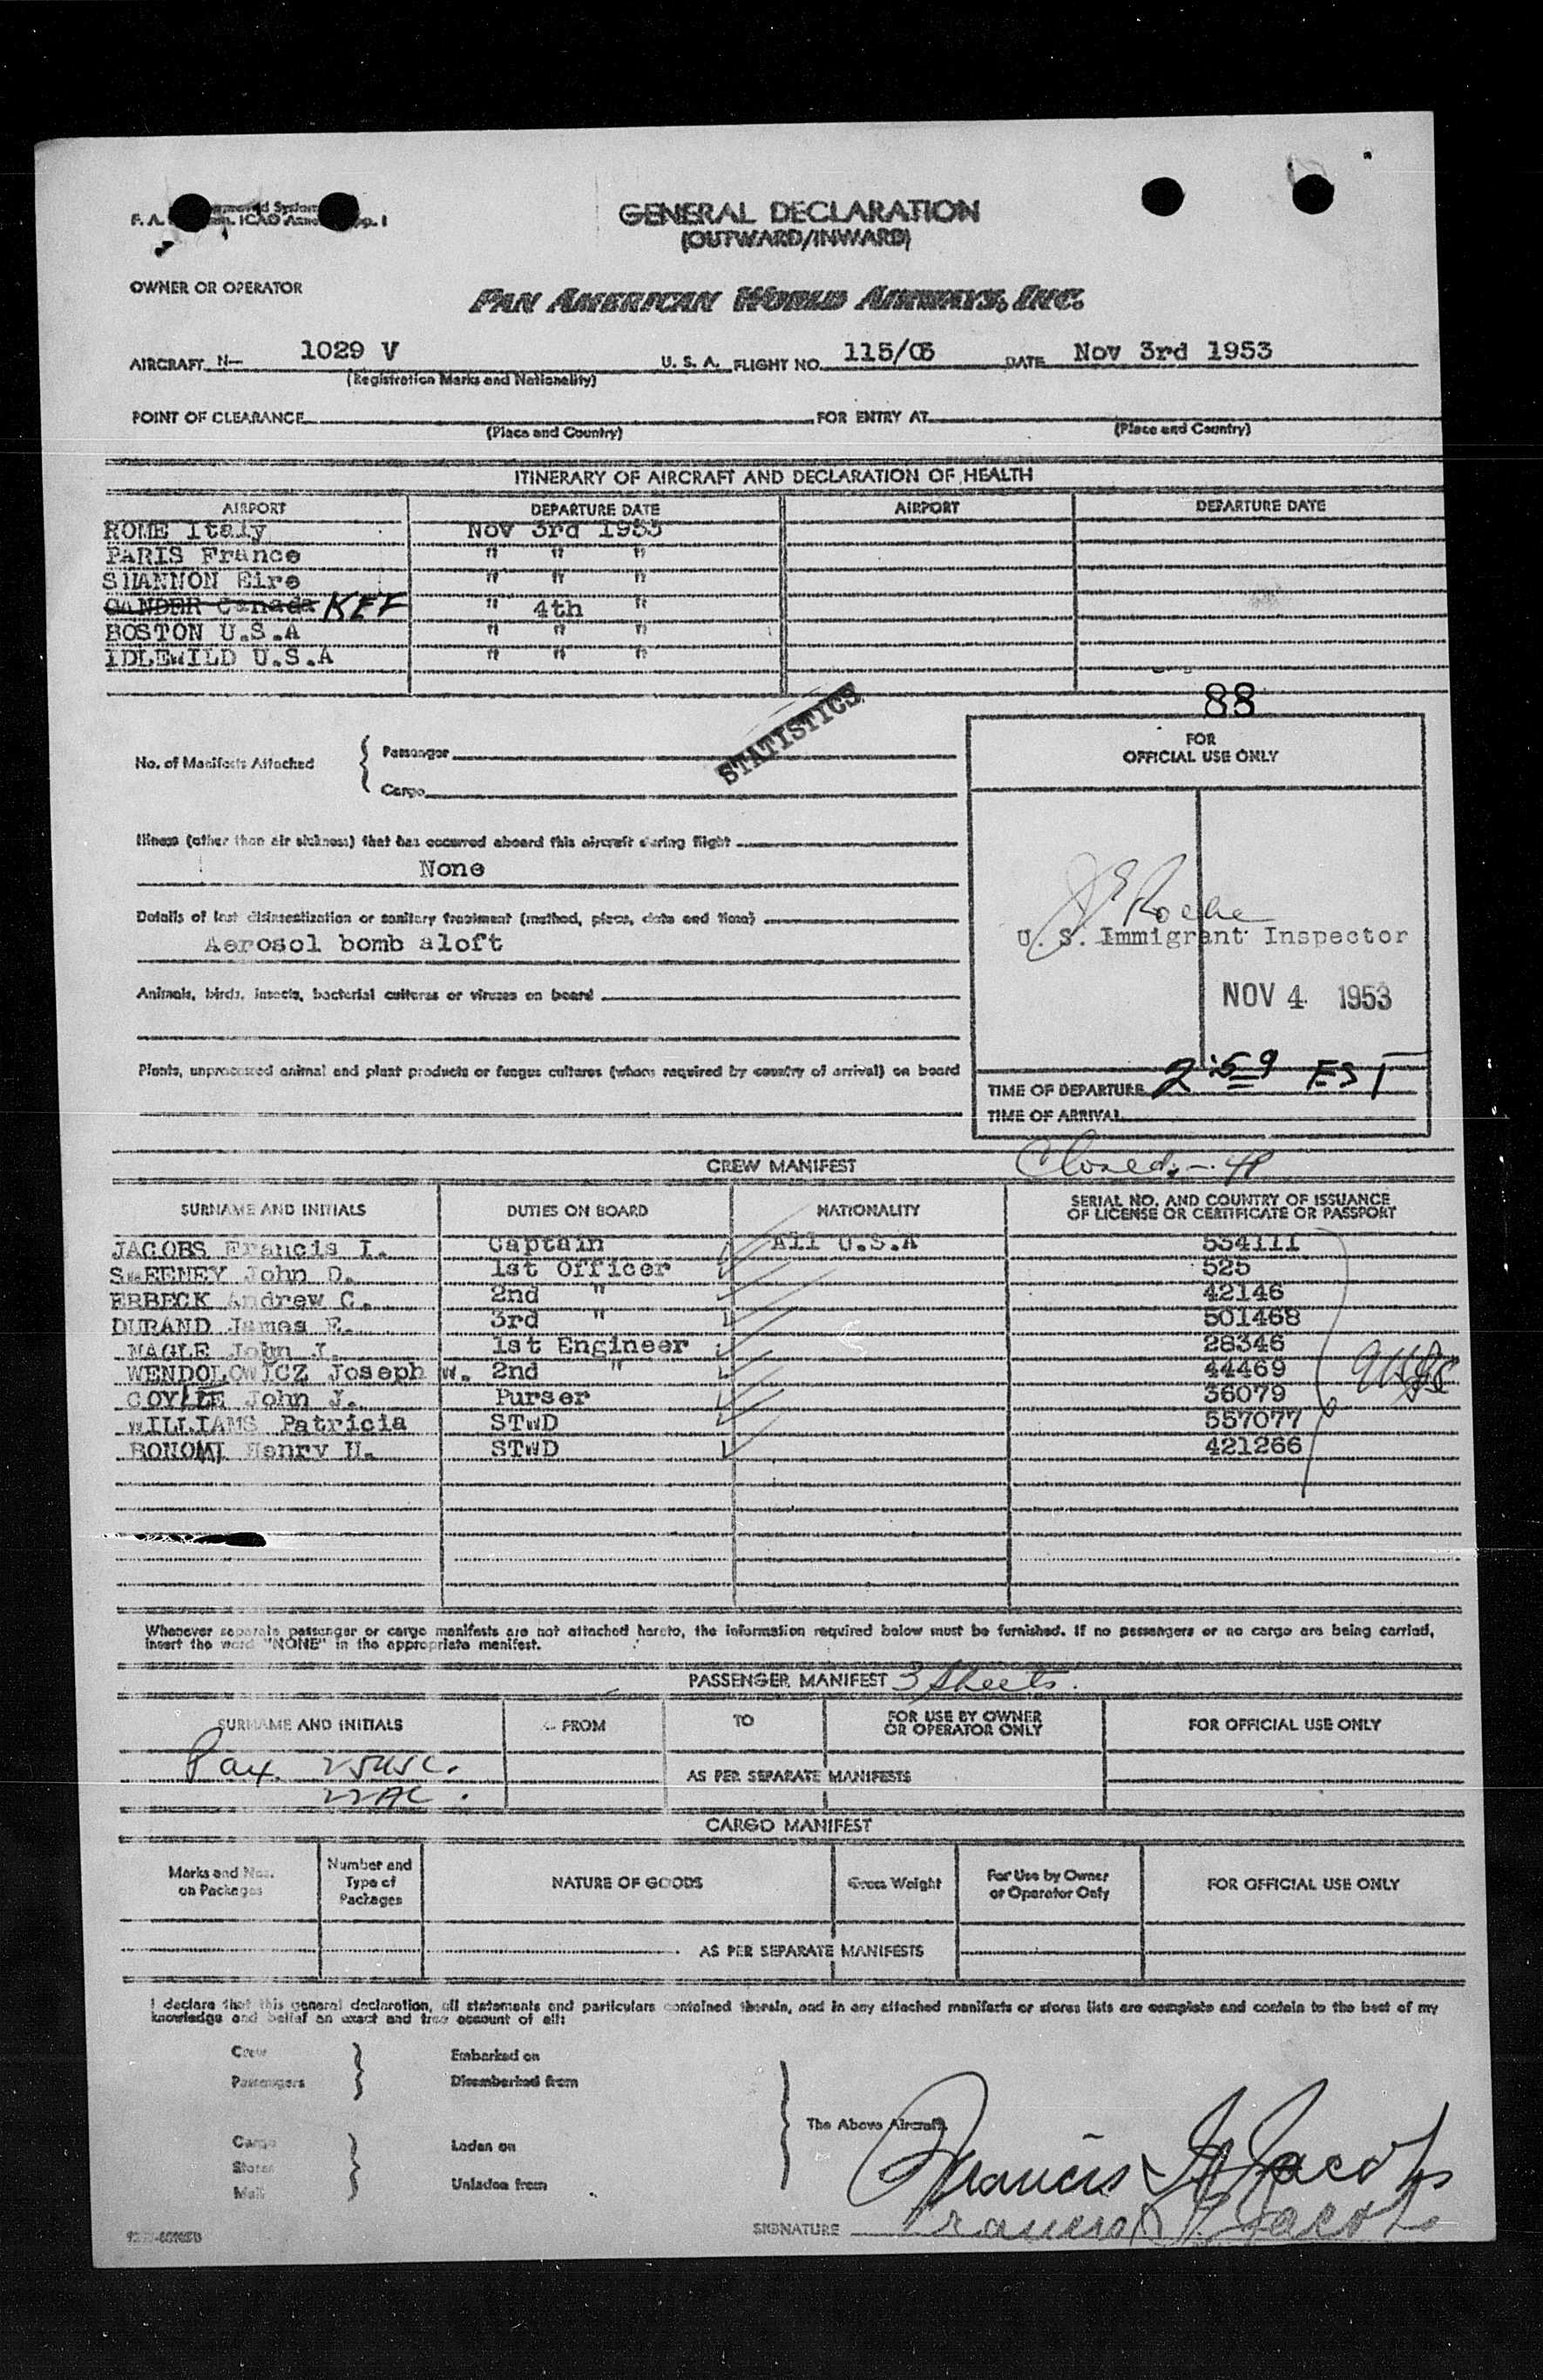 GENERAL DECLARATION
(OUTWARD/INWARD)
OWNER OR OPERATOR
PAN AMERICAN WORLD AIRWAYS, INC.
AIRCRAFT N- 1029 V U. S. A. FLIGHT NO. 115/03 DATE Nov 3rd 1953
(Registration Marks and Nationality)
POINT OF CLEARANCE FOR ENTRY AT
(Place and Country) (Place and Country)
ITINERARY OF AIRCRAFT AND DECLARATION OF HEALTH
AIRPORT DEPARTURE DATE AIRPORT DEPARTURE DATE
ROME Italy Nov 3rd 1953
PARIS France " " "
SHANNON Eire " " "
GANDER Canada KEF " 4th "
BOSTON U.S.A " " "
IDLEWILD U.S.A " " "
88
STATISTICS
FOR
OFFICIAL USE ONLY
No. of Manifests Attached
Passenger
Cargo
Illness (other than air sickness) that has occurred aboard this aircraft during flight
None
Details of last disinsectization or sanitary treatment (method, place, date and time)
Aerosol bomb aloft
Roche
U. S. Immigrant Inspector
NOV 4 1953
Animals, birds, insects, bacterial cultures or viruses on board
Plants, unprocessed animal and plant products or fungus cultures (where required by country of arrival) on board
TIME OF DEPARTURE 2:59 EST
TIME OF ARRIVAL
CREW MANIFEST Closed
SURNAME AND INITIALS DUTIES ON BOARD NATIONALITY SERIAL NO. AND COUNTRY OF ISSUANCE
OF LICENSE OR CERTIFICATE OR PASSPORT
JACOBS Francis I. Captain All U.S.A 534111
SWEENEY John D. 1st Officer 525
ERBECK Andrew C. 2nd " 42146
DURAND James E. 3rd " 501468
NAGLE John J. 1st Engineer 28346
WENDOLOWICZ Joseph W. 2nd " 44469
COYLE John J. Purser 36079
WILLIAMS Patricia STWD 557077
BONOMI Henry H. STWD 421266
Whenever separate passenger or cargo manifests are not attached hereto, the information required below must be furnished. If no passengers or no cargo are being carried,
insert the word "NONE" in the appropriate manifest.
PASSENGER MANIFEST 3 sheets.
SURNAME AND INITIALS FROM TO FOR USE BY OWNER
OR OPERATOR ONLY FOR OFFICIAL USE ONLY
Pax. 25 USC.
22 AC.
AS PER SEPARATE MANIFESTS
CARGO MANIFEST
Marks and Nos.
on Packages
Number and
Type of
Packages
NATURE OF GOODS
Gross Weight
For Use by Owner
or Operator Only
FOR OFFICIAL USE ONLY
AS PER SEPARATE MANIFESTS
I declare that this general declaration, all statements and particulars contained therein, and in any attached manifests or stores lists are complete and contain to the best of my
knowledge and belief an exact and true account of all:
Crew
Passengers
Embarked on
Disembarked from
The Above Aircraft.
Cargo
Stores
Mail
Laden on
Unladen from
Francis I Jacobs
SIGNATURE Francis I Jacobs